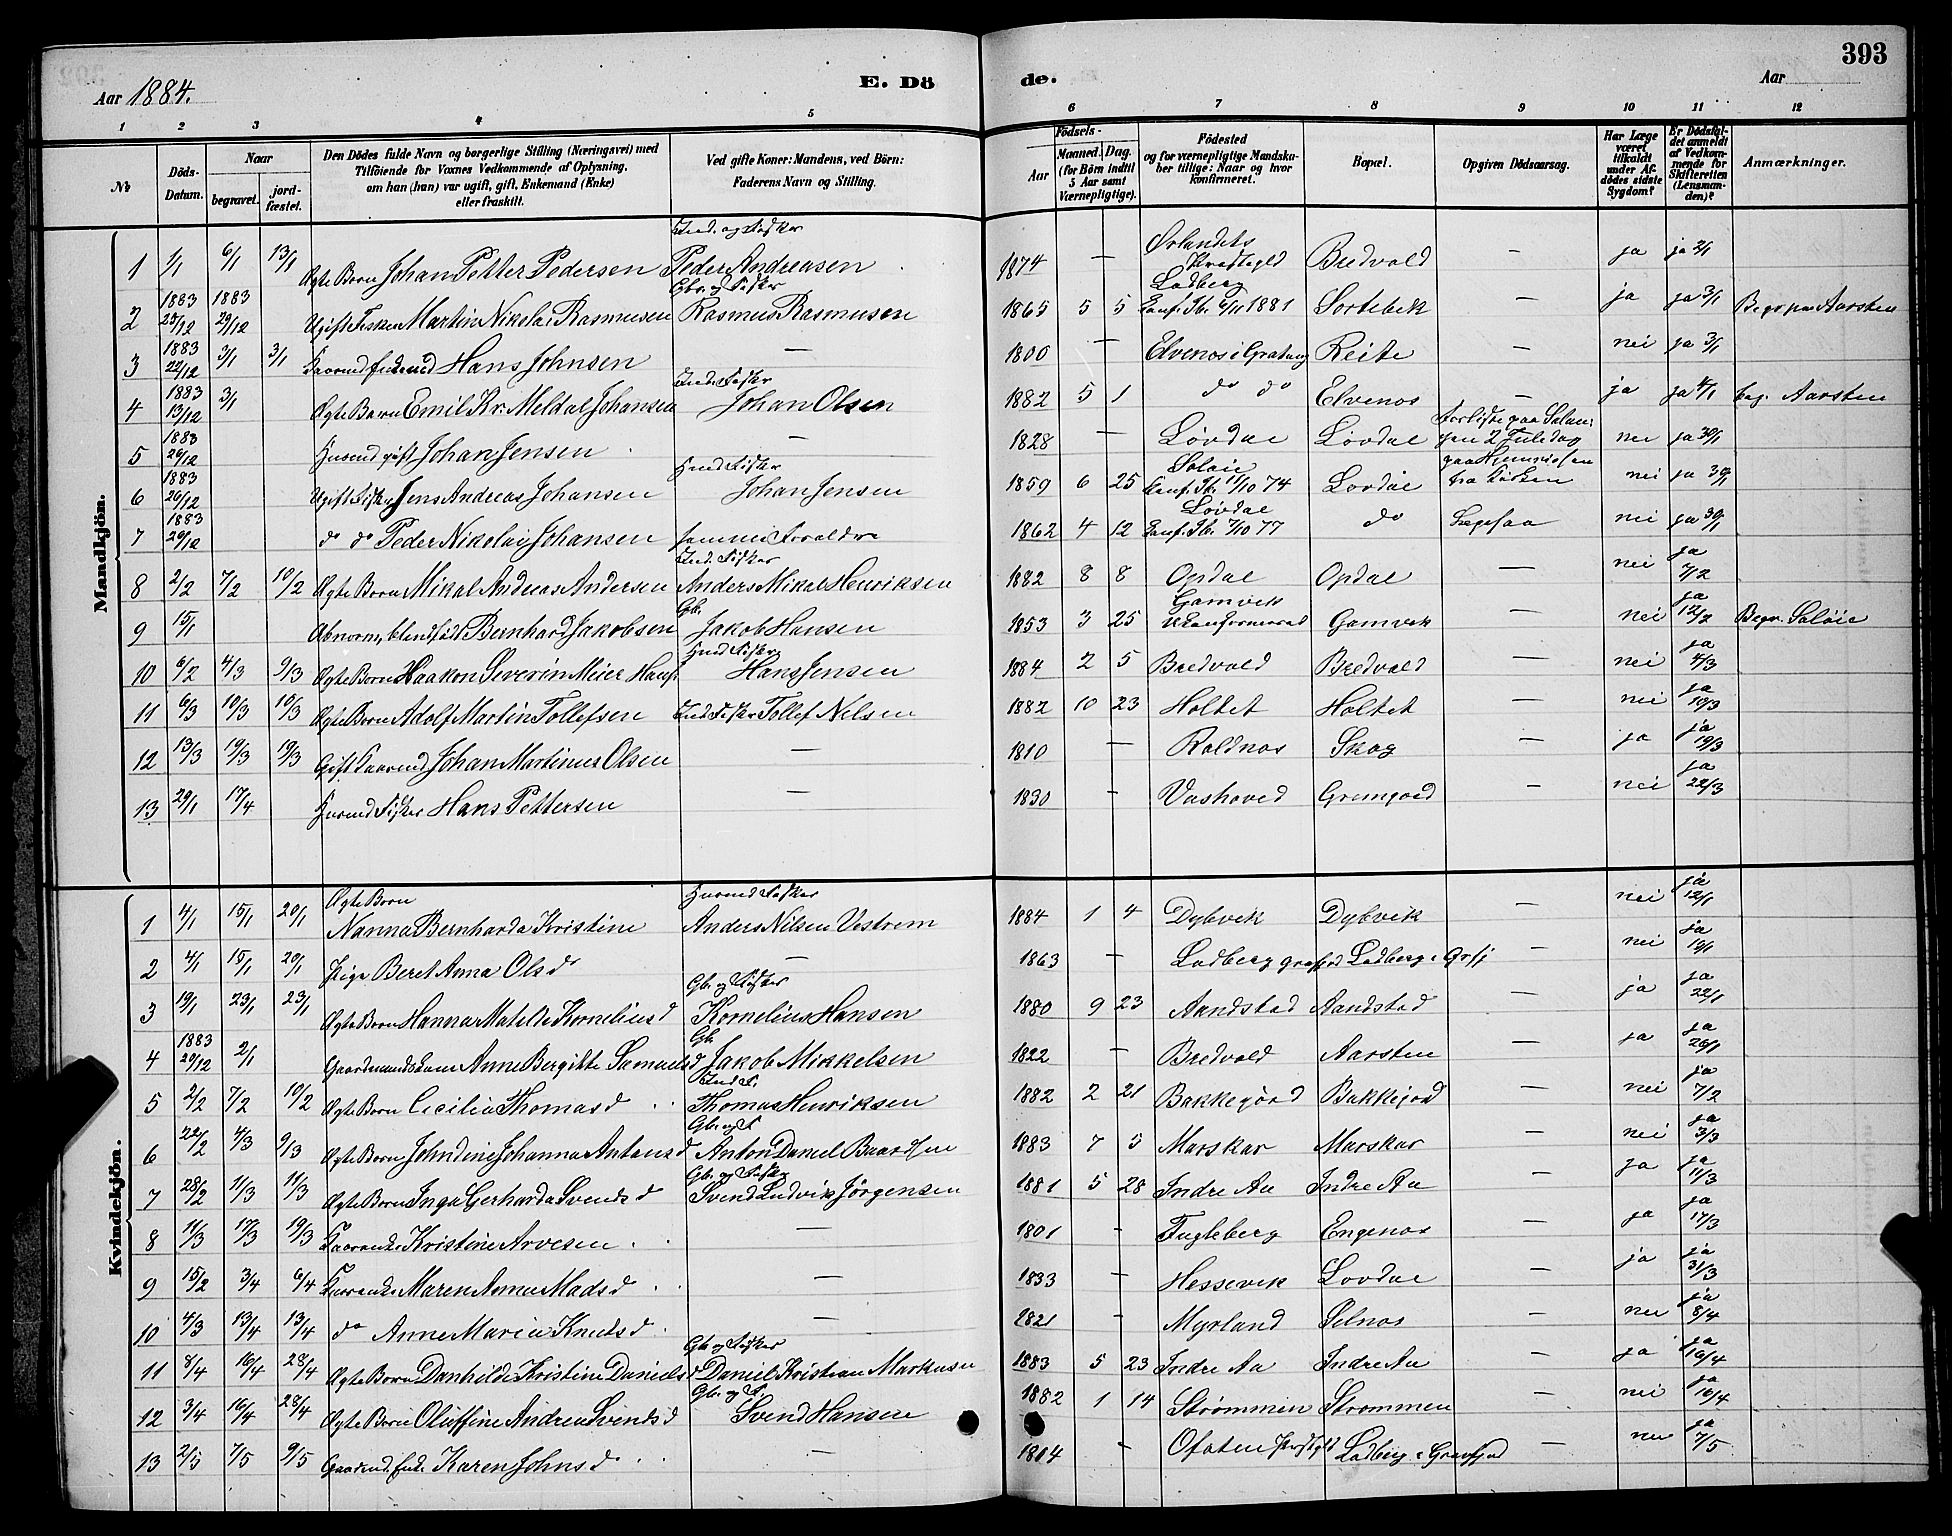 393
Aar 1884.
E. Dö de.
Aar
1 2 3 4 5 6 7 8 9 10 11 12
No
Döds-Datum.
Naar
begravet.
jord-fæstet.
Den Dödes fulde Navn og borgerlige Stilling (Næringsvei) med
Tilföiende for Voxnes Vedkommende af Oplysning,
om han (hun) var ugift, gift, Enkemand (Enke)
eller fraskilt.
Ved gifte Koner: Mandens, ved Börn:
Faderens Navn og Stilling.
Födsels-
Aar
Maaned. Dag.
(for Börn indtil
5 Aar samt
Værnepligtige).
Födested
og for værnepligtige Mandska-
ber tillige: Naar og hvor
konfirmeret.
Bopæl.
Opgiven Dödsaarsag.
Har Læge
været
tilkaldt
under Af-
dödes sidste
Sygdom?
Er Dödsfal-
det anmeldt
af Vedkom-
mende for
Skifteretten
(Lensman-
den)?
Anmærkninger.
Mandkjön.
Ind. og Fisker
1 1/1 6/1 13/1 Ægte Barn Johan Petter Pedersen Peder Andreasen 1874 — Ørlandets Bredvold — ja ja 2/1
Gbr. og Fisker
Ladberg
2 1883 28/12 1883 29/12 Ugift Fisker Martin Nikolai Rasmusen Rasmus Rasmusen 1865 5 5 1881 Sortebek — ja ja 3/1 Begr paa Aarsten
3 1883 22/12 3/1 3/1 Hans Johnsen — 1800 — Elvenos i Gratang Reite nei ja 3/1
Ind. Fisker
4 1883 13/12 3/1 Ægte Barn Emil Kr. Meldal Johansen Johan Olsen 1882 5 1 do do Elvenos — ja ja 4/1 beg. Aarsten
5 1883 26/12 Husmd gift Johan Jensen — 1828 — Løvdal Løvdal Forliste paa Salan- gen 2 Juledag nei ja 30/1
Husmd Fisker
6 1883 26/12 Ugift Fisker Jens Andreas Johansen Johan Jensen 1859 6 25 Soløie Konf. Ib. 11/10 74 Løvdal paa Hjemreisen fra Kirken nei ja 30/1
7 1883 26/12 do do Peder Nikolai Johansen samme Foraldre 1862 4 12 Løvdal Konf. Ib. 7/10 77 do nei ja 30/1
Ind. Fisker
8 2/2 7/2 10/2 Ægte Barn Mikal Andreas Andersen Anders Mikal Henriksen 1882 8 8 Opdal Opdal — nei ja 7/2
Gb.
9 15/1 Abnorm, blindfødt Bernhard Jakobsen Jakob Hansen 1853 3 25 Gamvik Ukonfirmeret Gamvik — nei ja 12/2 Begr. Soløie
Husmd Fisker
10 6/2 4/3 9/3 Ægte Barn Haakon Severin Meier Hans. Hans Jensen 1884 2 5 Bredvold Bredvold — nei ja 4/3
11 6/3 10/3 10/3 Ægte Barn Adolf Martin Tollefsen Ind. Fisker Tollef Nilsen 1882 10 23 Holtet Holtet — nei ja 10/3
12 13/3 19/3 19/3 Gift Johan Martinus Olsen — 1810 — Roldnos Skog — ja ja 19/3
13 29/1 17/4 Husmd Fisker Hans Pettersen — 1830 — Vashoved — nei ja 22/3
Kvindekjön.
Ægte Barn Husmd Fisker
1 4/1 15/1 20/1 Nanna Bernharda Kristine Anders Nilsen Vestrem 1884 1 4 Dybvik Dybvik — nei ja 12/1
2 4/1 15/1 20/1 Pige Beret Anna Olsd — 1863 — Ladberg Ladberg i — nei ja 19/1
Gb. og Fisker
3 19/1 23/1 23/1 Ægte Barn Hanna Matilde Kornelius d Kornelius Hansen 1880 9 23 Aandstad Aandstad — ja ja 22/1
Gb.
4 1883 20/12 2/1 Gaardmandskone Anne Bergitte Samuelsd Jakob Mikkelsen 1822 — Bredvold Aarsten — ja ja 26/1
Ind F.
5 2/2 7/2 10/2 Ægte Barn Cecilia Thomasd Thomas Henriksen 1882 2 21 Bakkejord Bakkejord — nei ja 7/2
Gb. og F
6 22/2 4/3 9/3 Ægte Barn Johndine Johanna Antonsd Anton Daniel Baardsen 1883 7 5 Marskar Marskar — nei ja 3/3
Gb. og Fisker
7 28/2 11/3 11/3 Ægte Barn Inga Gerharda Svendsd Svend Ludvik Jørgensen 1881 5 28 Indre Aa Indre Aa — ja ja 11/3
8 11/3 17/3 19/3 Kristine Arvesen — 1801 — Fugleberg Engenos — ja ja 17/3
9 15/2 3/4 6/4 Maren Anna Madsd — 1833 — Hessevik Lovdal — ja ja 31/3
10 4/3 13/4 13/4 do Anne Maria Knutsd — 1821 — Myrland Selnos — nei ja 8/4
Gb og Fisker
11 8/4 16/4 28/4 Ægte Barn Danhilde Kristine Danielsd Daniel Kristian Markusen 1883 5 23 Indre Aa Indre Aa — ja ja 16/4
Gb. og F.
12 3/4 16/4 28/4 Ægte Barn Oluffine Andrea Svendsd Svend Hansen 1882 1 14 Strømmen Strommen — nei ja 16/4
13 2/5 7/5 9/5 Karen Johnsd — 1804 — Ofoten Ladberg i Gravfjord — nei ja 7/5